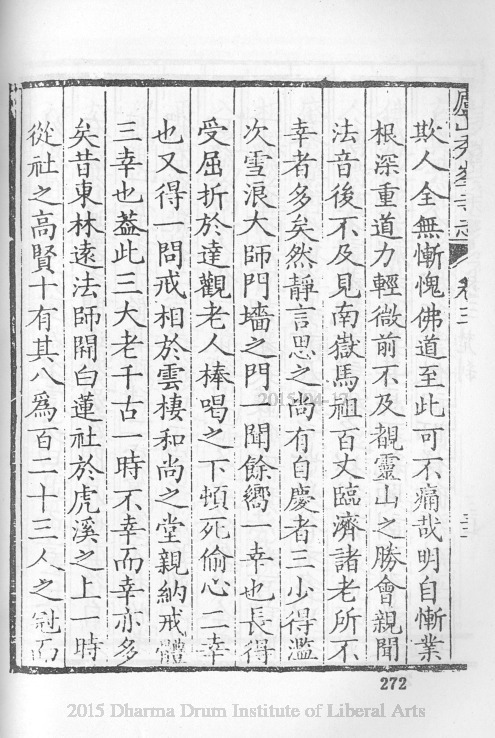 欺人全無慚愧佛道至此可不痛哉明自慚業
根深重道力輕微前不及覩靈山之勝會親聞
法音後不及見南嶽馬祖百丈臨濟諸老所不
幸者多矣然靜言思之尚有自慶者三少得濫
次雪浪大師門墻之門一聞餘嚮一幸也長得
受屈折於達觀老人棒喝之下頓死偷心二幸
也又得一問戒相於雲棲和尚之堂親納戒體
三幸也葢此三大老千古一時不幸而幸亦多
矣昔東林遠法師開白蓮社於虎溪之上一時
從社之高賢十有其八爲百二十三人之冠而
卷三
272
2015 Dharma Drum Institute of Liberal Arts